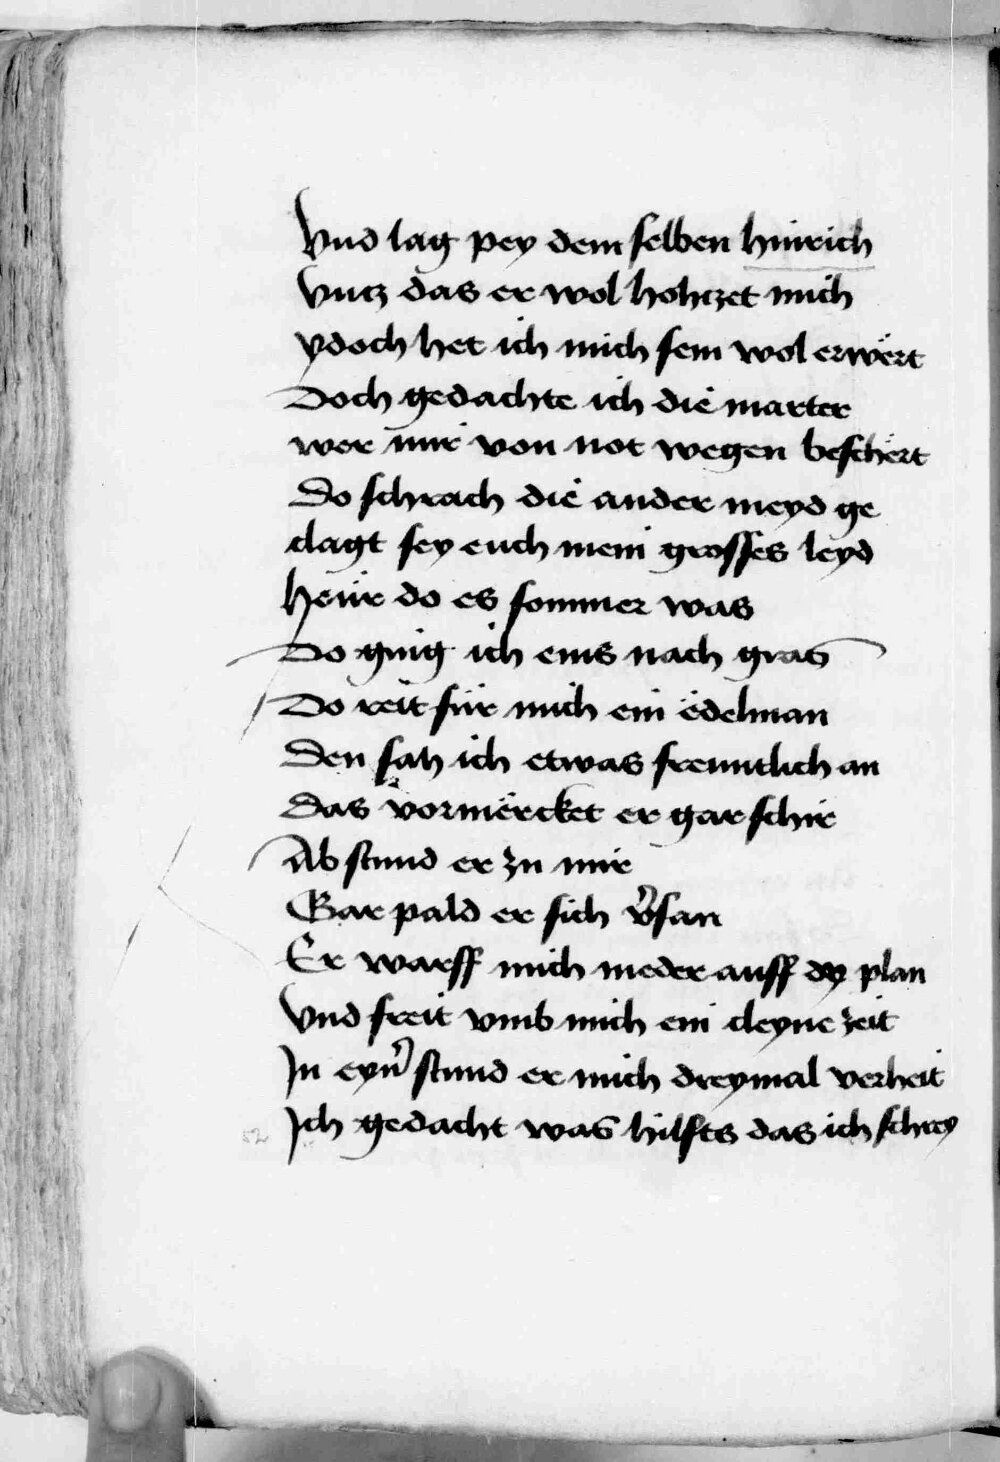 Vnd lag pey dem selben hinrich
Vntz das er wol hohtzet mich
ydoch het ich mich sein wol erwërt
Doch gedachte ich die marter
wer mir von not wegen beschërt
Do schrach die ander meyd ge
clagt sey euch mein grosses leyd
Heür do es sommer was
Do ging ich eins nach gras
Do reit für mich ein ëdelman
Den sah ich etwas freuntlich an
Das vormërcket er gar schir
Ab stund er zu mir
Gar pald er sich v̾san
Er warff mich nieder auff dy plan
Vnd freit vmb mich ein cleyne zeit
In eyn̾ stund er mich dreymal verheit
Ich gedacht was hilfts das ich schrey